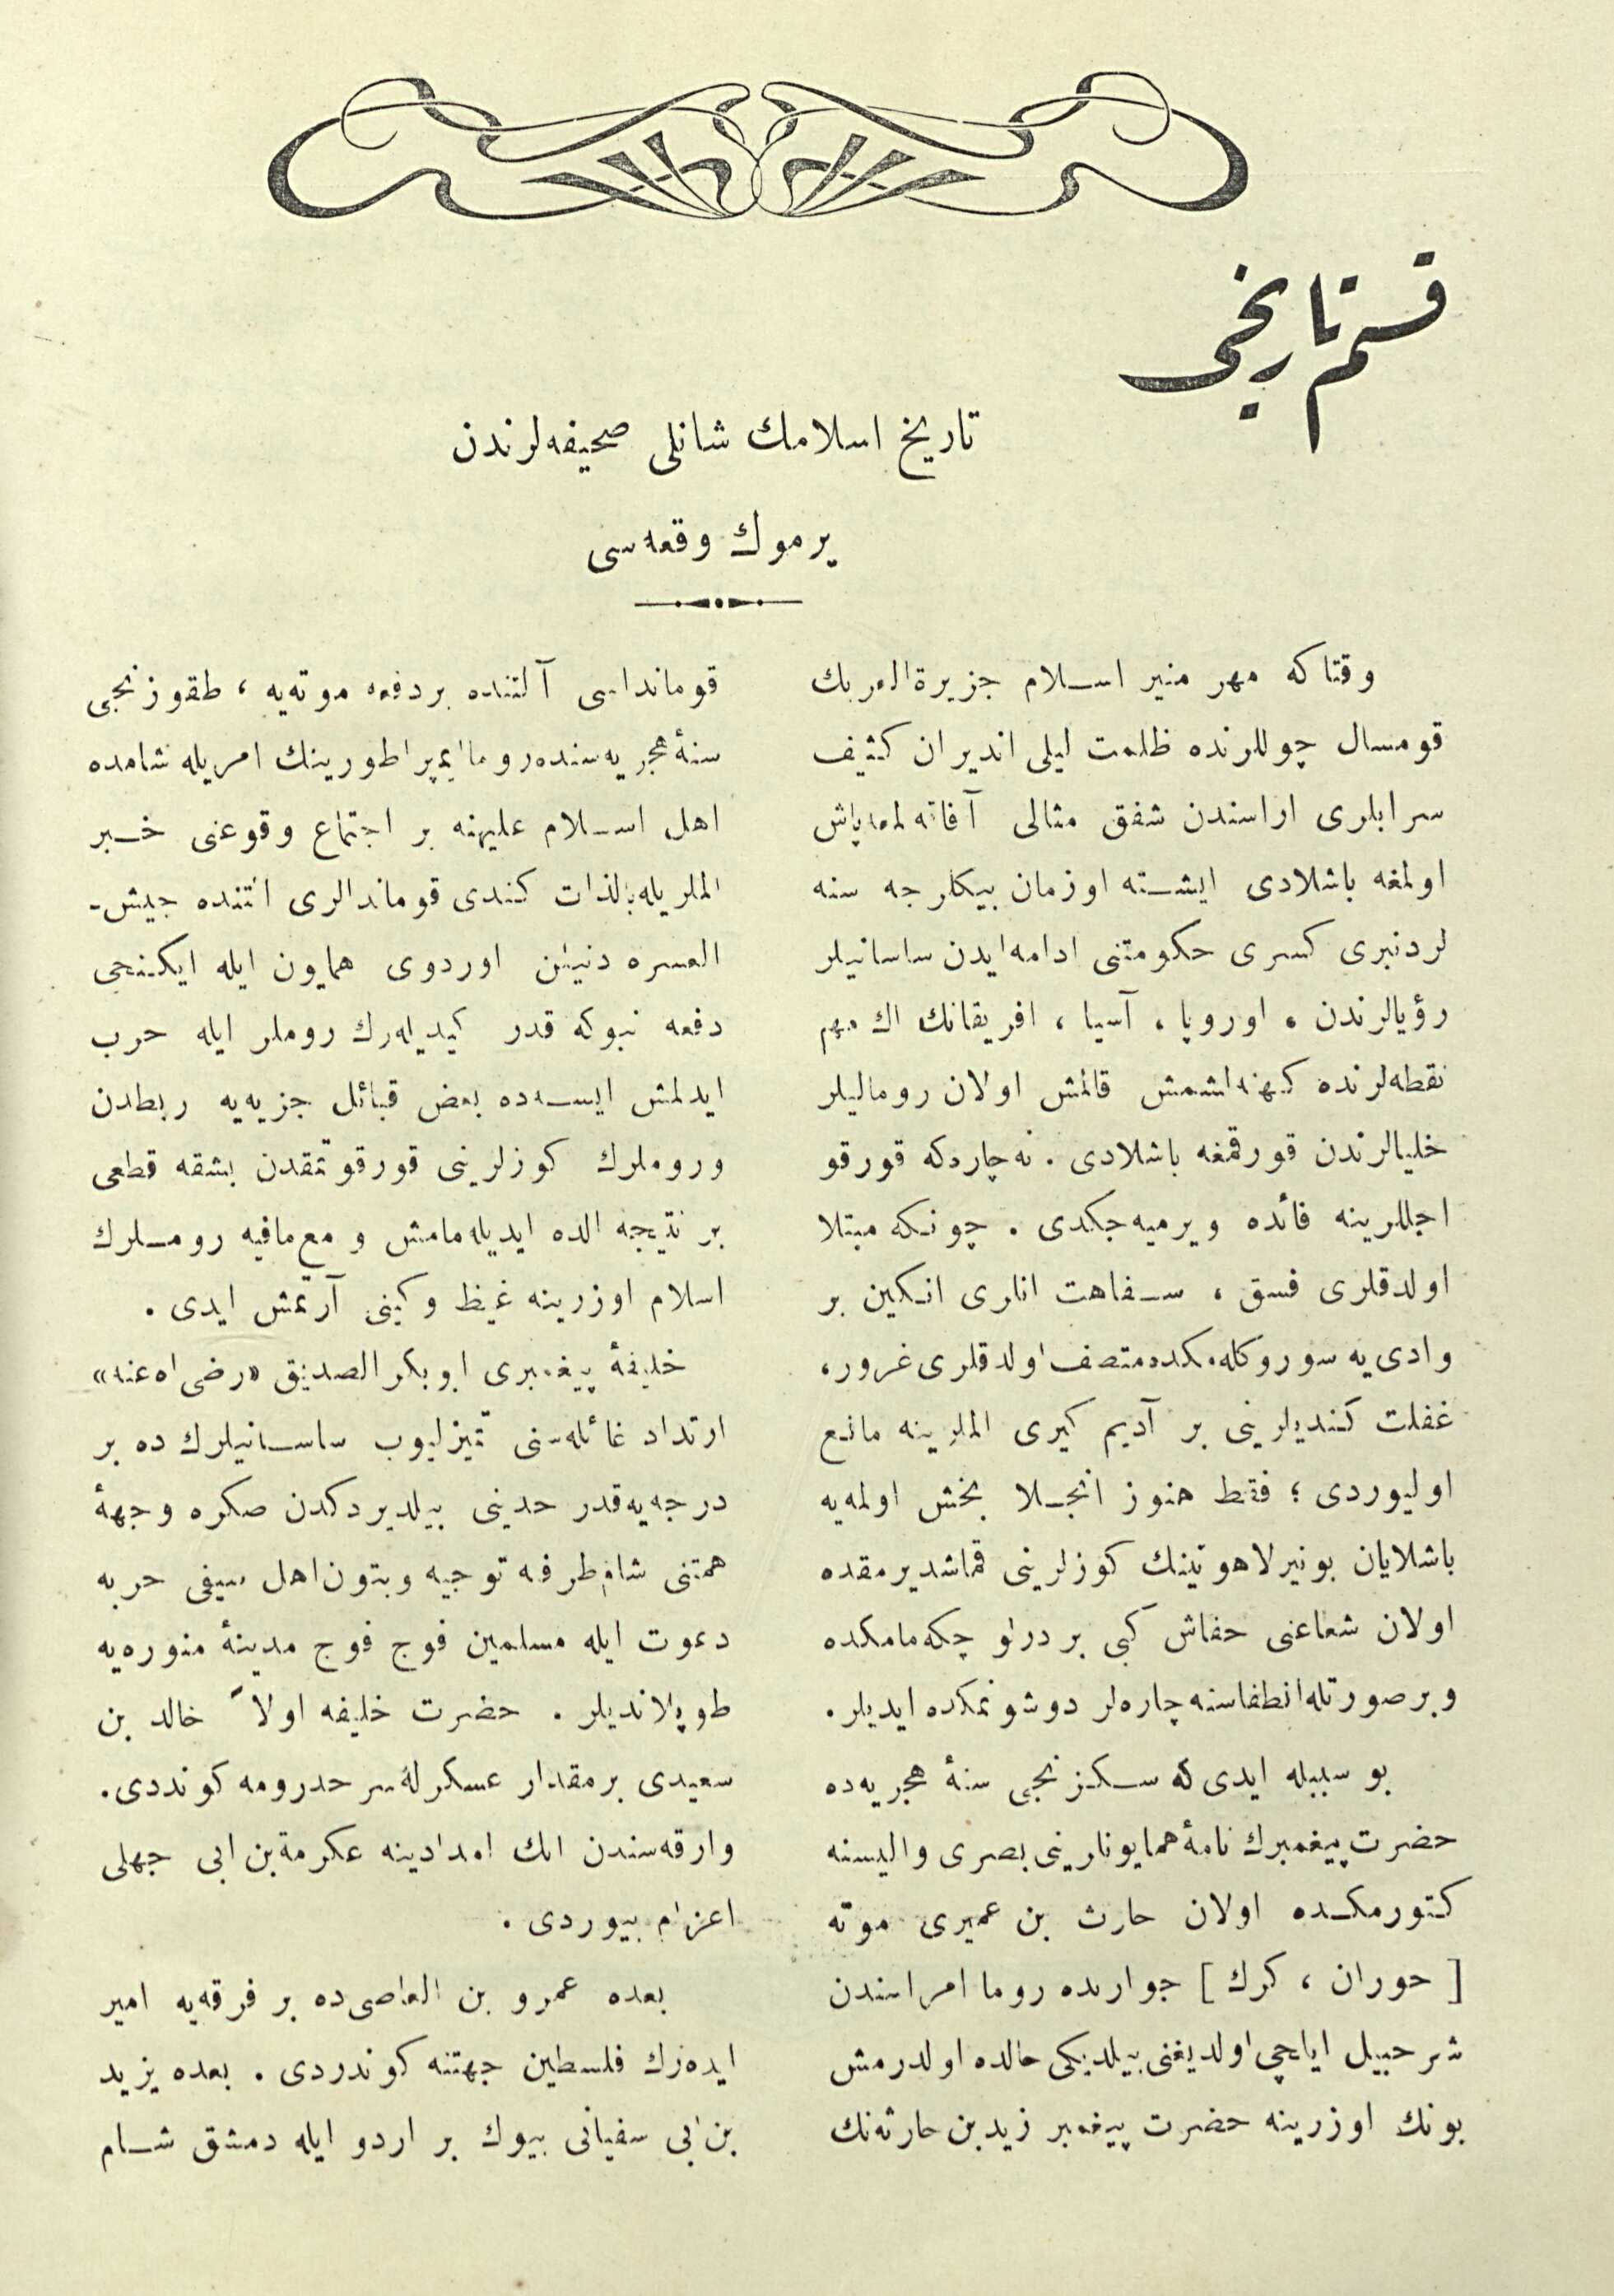 قسم تاريخى
تاريخ اسلامك شانلى صحيفه‌لرندن
يرموك وقعه‌سى
وقتاكه مهر منير اسلام جزيرة‌العربك
قومسال چوللرنده ظلمت ليلى انديران كثيف
سرابلرى اراسندن شفق مثالى آفاقه لمعه‌پاش
اولمغه باشلادى ايشته اوزمان بيكلرجه سنه
لردنبرى كسرى حكومتنى ادامه‌ايدن ساسانيلر
رؤيالرندن ، اوروپا ، آسيا ، افريقانك اك مهم
نقطه‌لرنده كهنه‌لشمش قالمش اولان روماليلر
خليالرندن قورقمغه باشلادى . نه‌چاره‌كه قورقو
اجللرينه فائده ويرميه‌جكدى . چونكه مبتلا
اولدقلرى فسق ، سفاهت انلرى انكين بر
وادى‌يه سوروكله‌مكده‌متصف اولدقلرى غرور،
غفلت كنديلرينى بر آديم كيرى الملرينه مانع
اوليوردى ؛ فقط هنوز انجلا بخش اولمه‌يه
باشلايان بونيرلاهوتينك كوزلرينى قماشديرمقده
اولان شعاعنى حفاش كبى بر درلو چكه‌مامكده
وبرصورتله‌انطفاسنه چاره‌لر دوشونمكده ايديلر.
بو سببله ايدى كه سكزنجى سنۀ هجريه‌ده
حضرت پيغمبرك نامۀ همايونلرينى بصرى واليسنه
كتورمكده اولان حارث بن عميرى موته
[ حوران ، كرك ] جوارنده روما امراسندن
شرحبيل اياچى اولديغنى بيلديكى حالده اولدرمش
بونك اوزرينه حضرت پيغمبر زيدبن حارثه‌نك
قومانداسى آلتنده بردفعه موته‌يه ، طقوزنجى
سنۀ هجريه‌سنده‌روما ايمپراطورينك امريله شامده
اهل اسلام عليهنه بر اجتماع وقوعنى خبر
الملريله‌بالذات كندى قوماندالرى التنده جيش-
العسره دنيلن اوردوى همايون ايله ايكنجى
دفعه تبوكه قدر كيديله‌رك روملر ايله حرب
ايدلمش ايسه‌ده بعض قبائل جزيه‌يه ربطدن
وروملرك كوزلرينى قورقوتمقدن بشقه قطعى
بر نتيجه الده ايديله‌مامش و مع‌مافيه روملرك
اسلام اوزرينه غيظ وكينى آرتمش ايدى .
خليفۀ پيغمبرى ابوبكر الصديق «رضى‌اه‌عنه»
ارتداد غائله‌سنى تميزليوب ساسانيلرك ده بر
درجه‌يه‌قدر حدينى بيلديردكدن صكره وجهۀ
همتنى شام‌طرفه توجيه وبتون‌اهل سيفى حربه
دعوت ايله مسلمين فوج فوج مدينۀ منوره‌يه
طوپلانديلر . حضرت خليفه اولاً خالد بن
سعيدى برمقدار عسكرله‌سرحدرومه كوندردى.
وارقه‌سندن انك امدادينه عكرمة‌بن ابى جهلى
اعزام بيوردى .
بعده عمرو بن العاصى‌ده بر فرقه‌يه امير
ايده‌رك فلسطين جهتنه كوندردى . بعده يزيد
بن‌ابى سفيانى بيوك بر اردو ايله دمشق شام